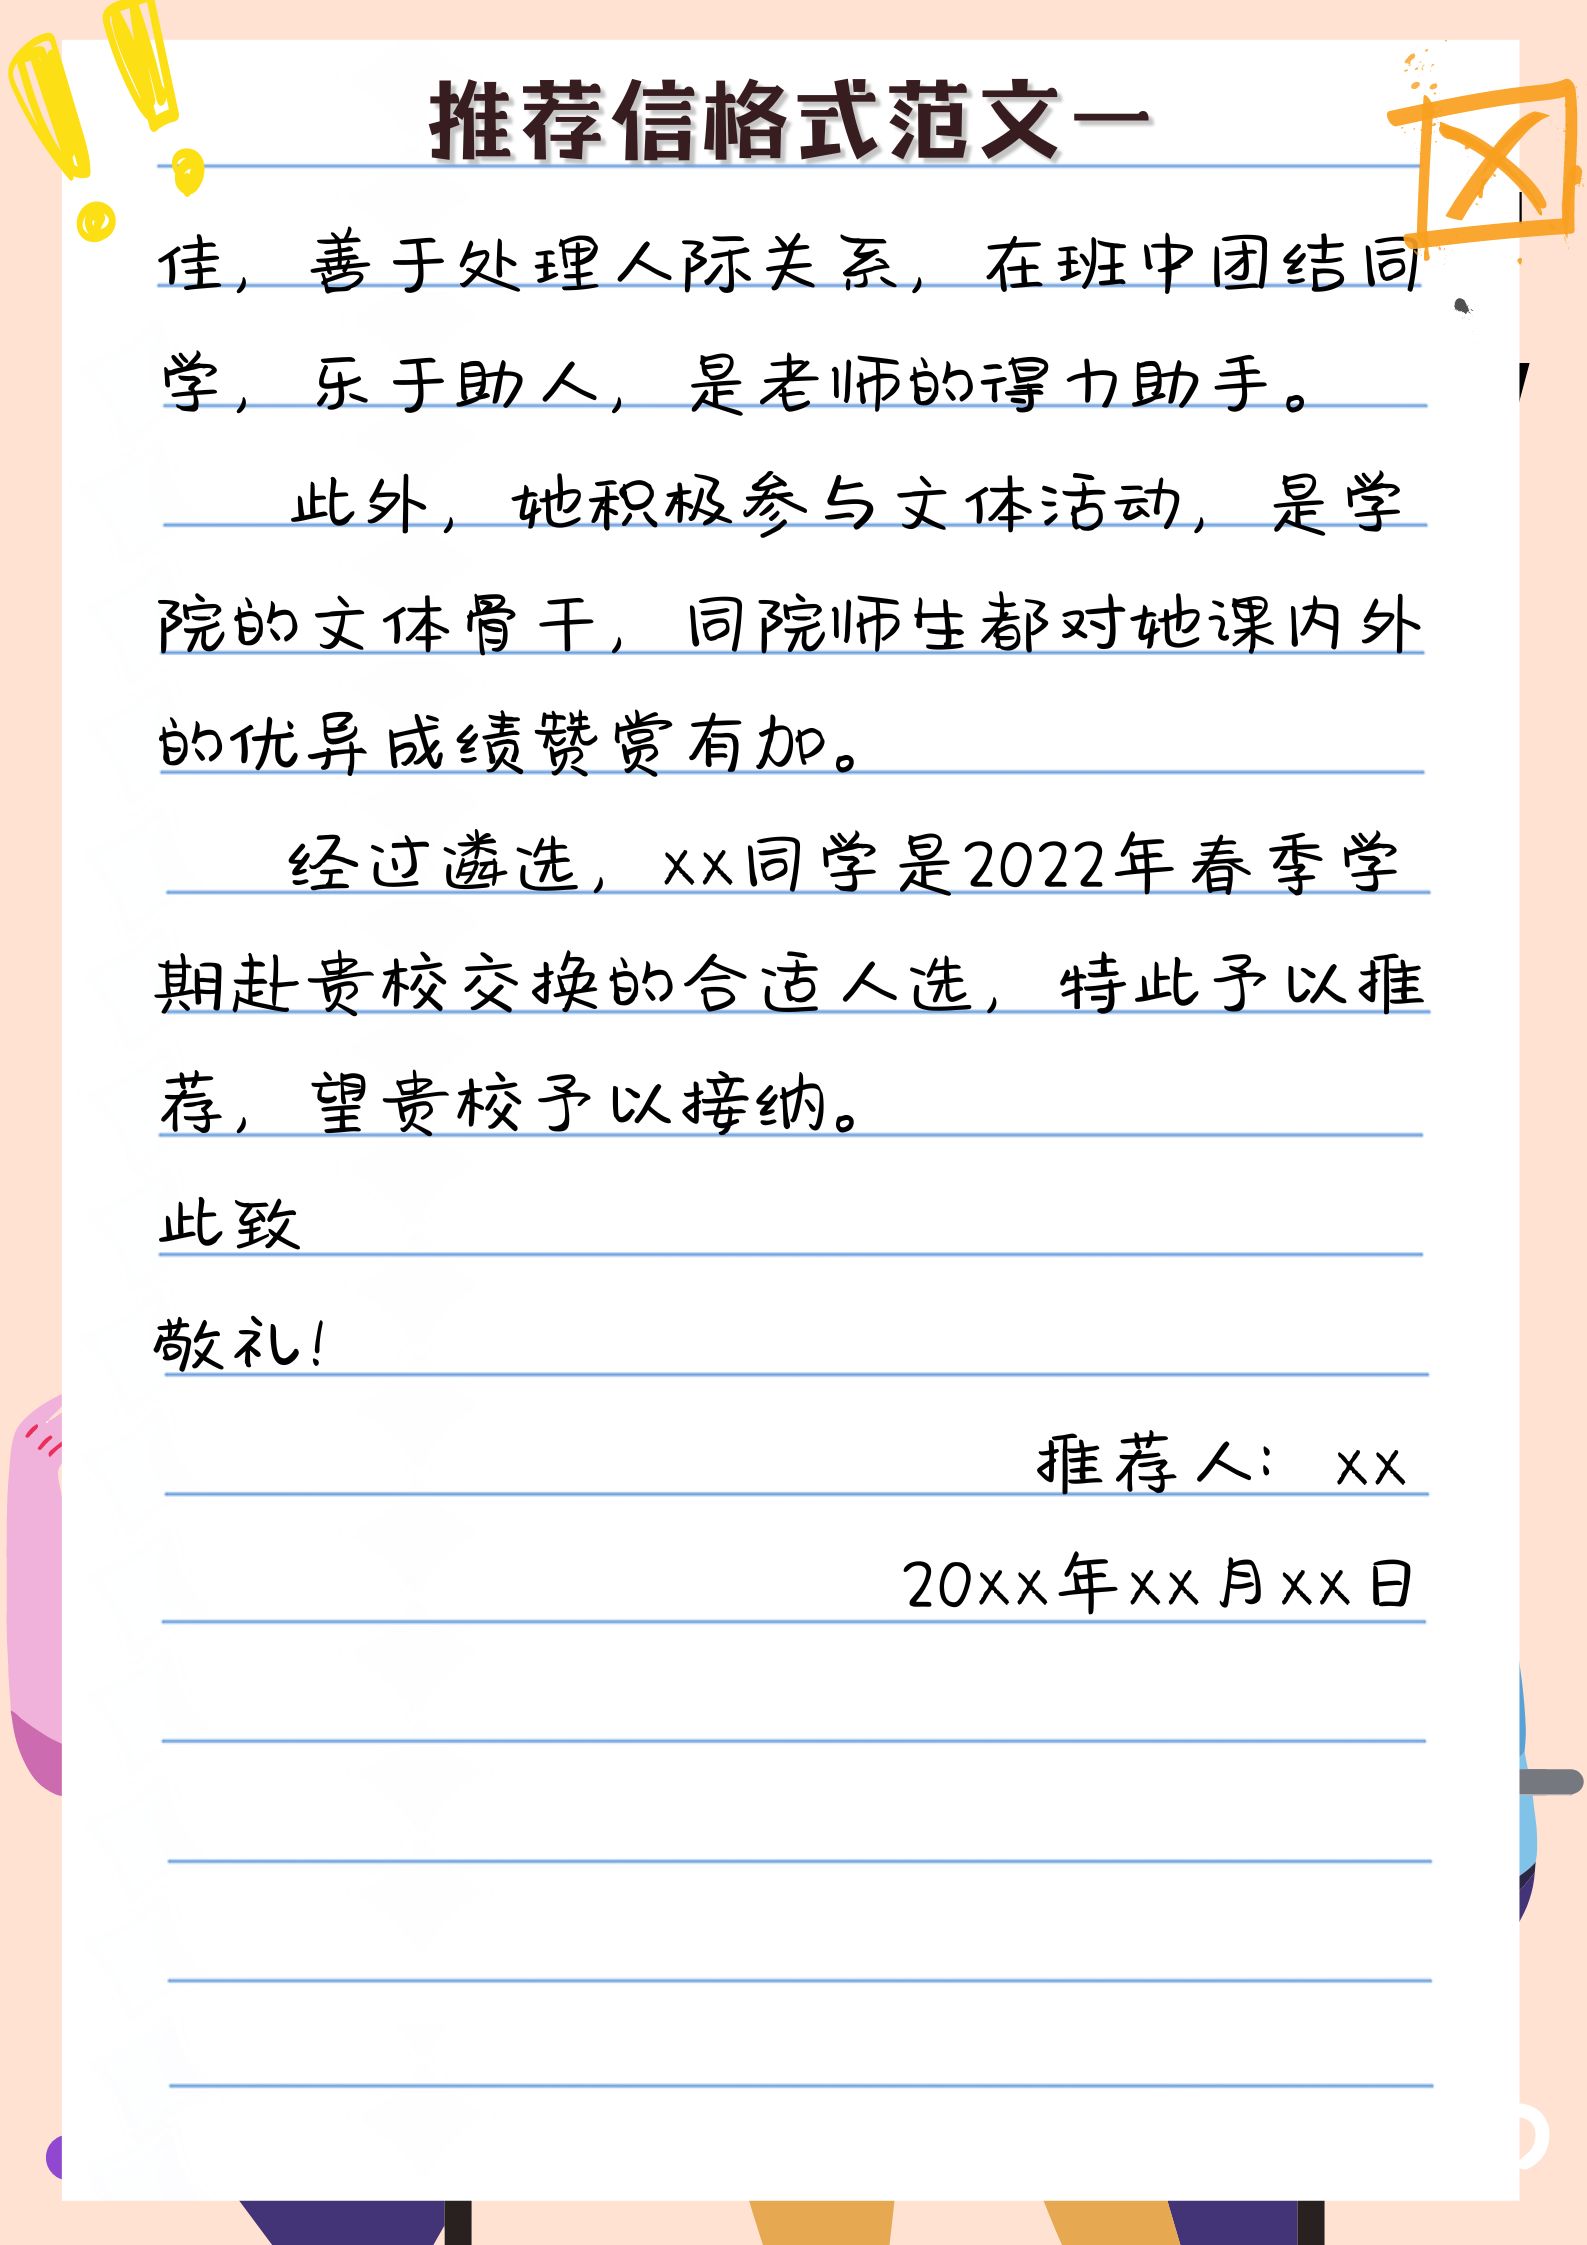 推荐信格式范文一
佳，善于处理人际关系，在班中团结同
学，乐于助人，是老师的得力助手。
此外，她积极参与文体活动，是学
院的文体骨干，同院师生都对她课内外
的优异成绩赞赏有加。
经过遴选，xx同学是2022年春季学
期赴贵校交换的合适人选，特此予以推
荐，望贵校予以接纳。
此致
敬礼！
推荐人：xx
20xx年xx月xx日